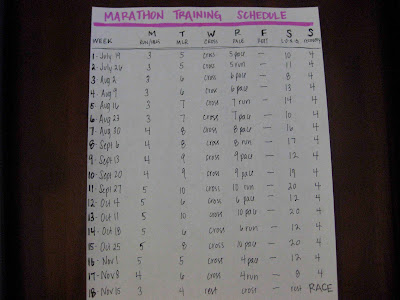 MARATHON TRAINING SCHEDULE
M T W R F S S
WEEK MLR CROSS PACE LONG
1 - July 19 3 5 cross pace — 10 4
2 - July 26 3 5 cross 5 run — 11 4
3 - Aug 2 3 6 cross 6 pace — 8 4
4 - Aug 9 3 6 cross 6 pace — 13 4
5 - Aug 16 3 7 cross 7 run — 14 4
6 - Aug 23 3 7 cross 7 pace — 10 4
7 - Aug 30 4 8 cross 8 pace — 16 4
8 - Sept 6 4 8 cross 8 run — 17 4
9 - Sept 13 4 9 cross 9 pace — 12 4
10 - Sept 20 4 9 cross 9 pace — 19 4
11 - Sept 27 5 10 cross 10 run — 20 4
12 - Oct 4 5 6 cross 6 pace — 12 4
13 - Oct 11 5 10 cross 10 pace — 20 4
14 - Oct 18 5 6 cross 6 run — 12 4
15 - Oct 25 5 8 cross 10 pace — 20 4
16 - Nov 1 5 5 cross 4 pace — 12 4
17 - Nov 8 4 6 cross 4 run — 8 4
18 Nov 15 3 4 rest cross — rest RACE